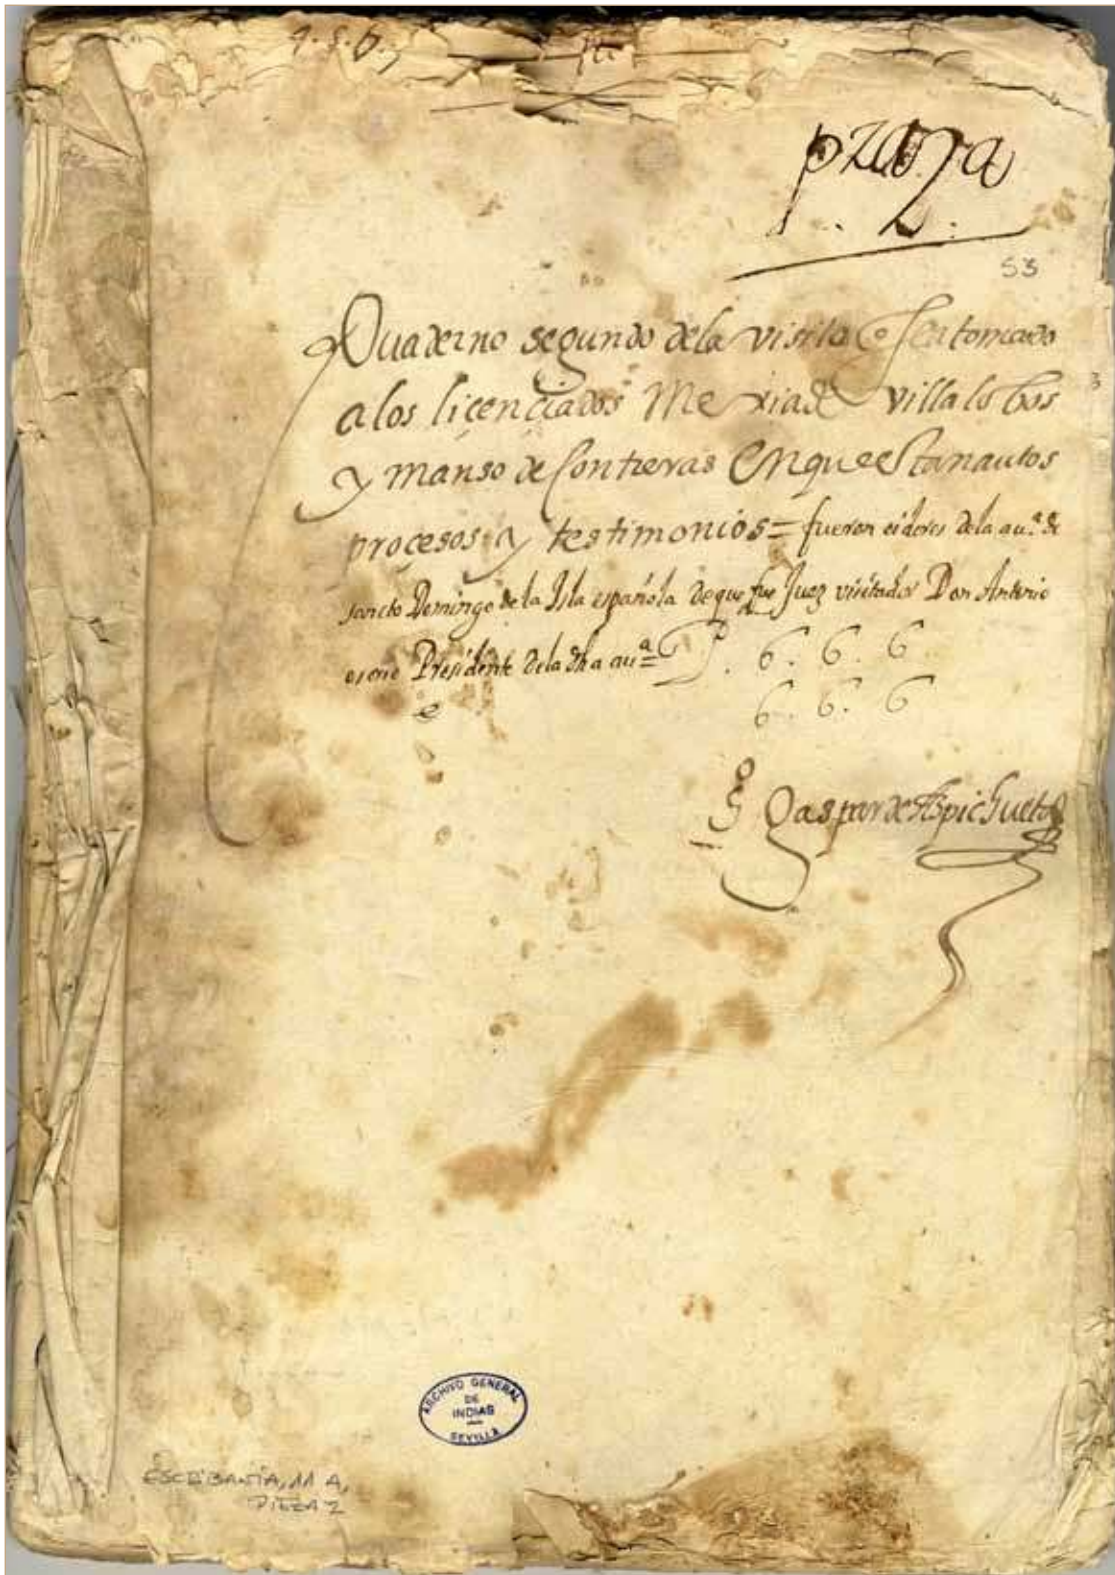 4. 5. 6.
pieza
p. 2.
53
Quaderno segundo de la visita q se a tomado
a los licenciados Mexia de villalobos
y manso de Contreras En que estan autos
procesos y testimonios = fueron oidores de la au.ª de
sancto Domingo de la Isla española de que fue Juez visitador Don Antonio
osorio Presidente de la dha auª
6. 6. 6
6. 6. 6
Gaspar de Azpichueta
ARCHIVO GENERAL
DE
INDIAS
SEVILLA
ESCRIBANÍA, 11 A,
PIEZA 2